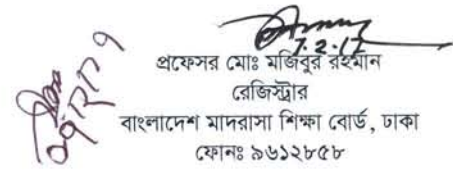 7.2.17
প্রফেসর মোঃ মজিবুর রহমান
রেজিস্ট্রার
বাংলাদেশ মাদরাসা শিক্ষা বোর্ড, ঢাকা
ফোনঃ ৯৬১২৮৫৮